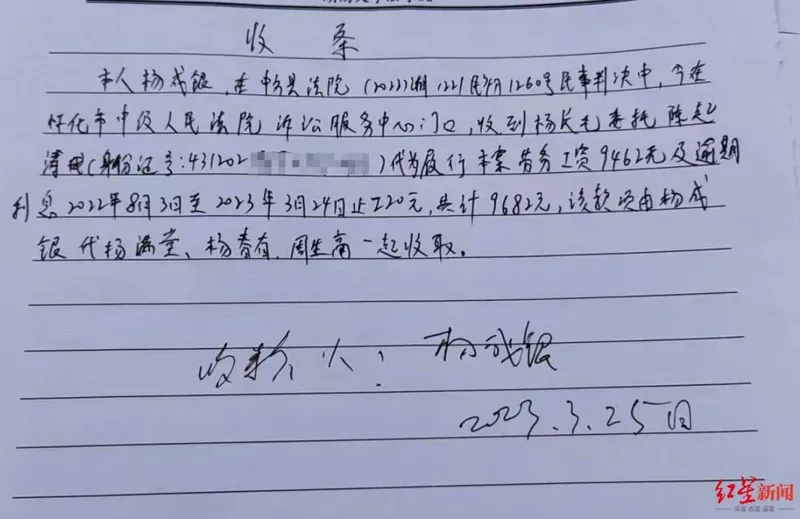 收 条
本人杨成银,在中方县法院(2022)湘1221民初1260号民事判决中,今在
怀化市中级人民法院诉讼服务中心门口,收到杨长毛委托陈起
清电(身份证号:431202)代为履行本案劳务工资9462元及逾期
利息2022年8月3日至2023年3月24日止220元,共计9682元,该款项由杨成
银代杨满堂、杨春有、周生高一起收取。
收款人:杨成银
2023.3.25日
红星新闻
深度 态度 温度